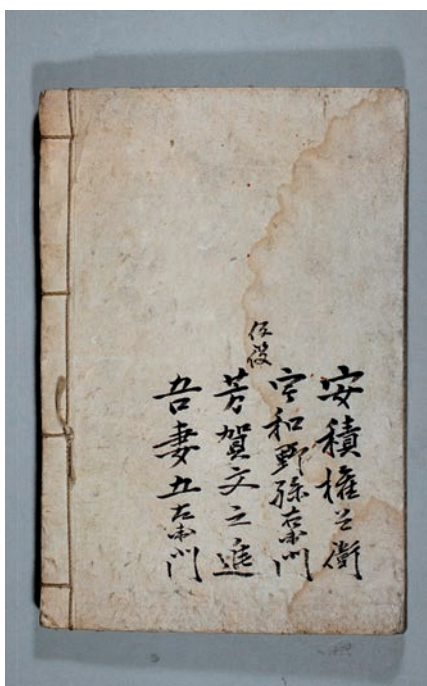 安積権之衛
仮役
宇和野孫右衛門
芳賀文之進
吾妻五左衛門